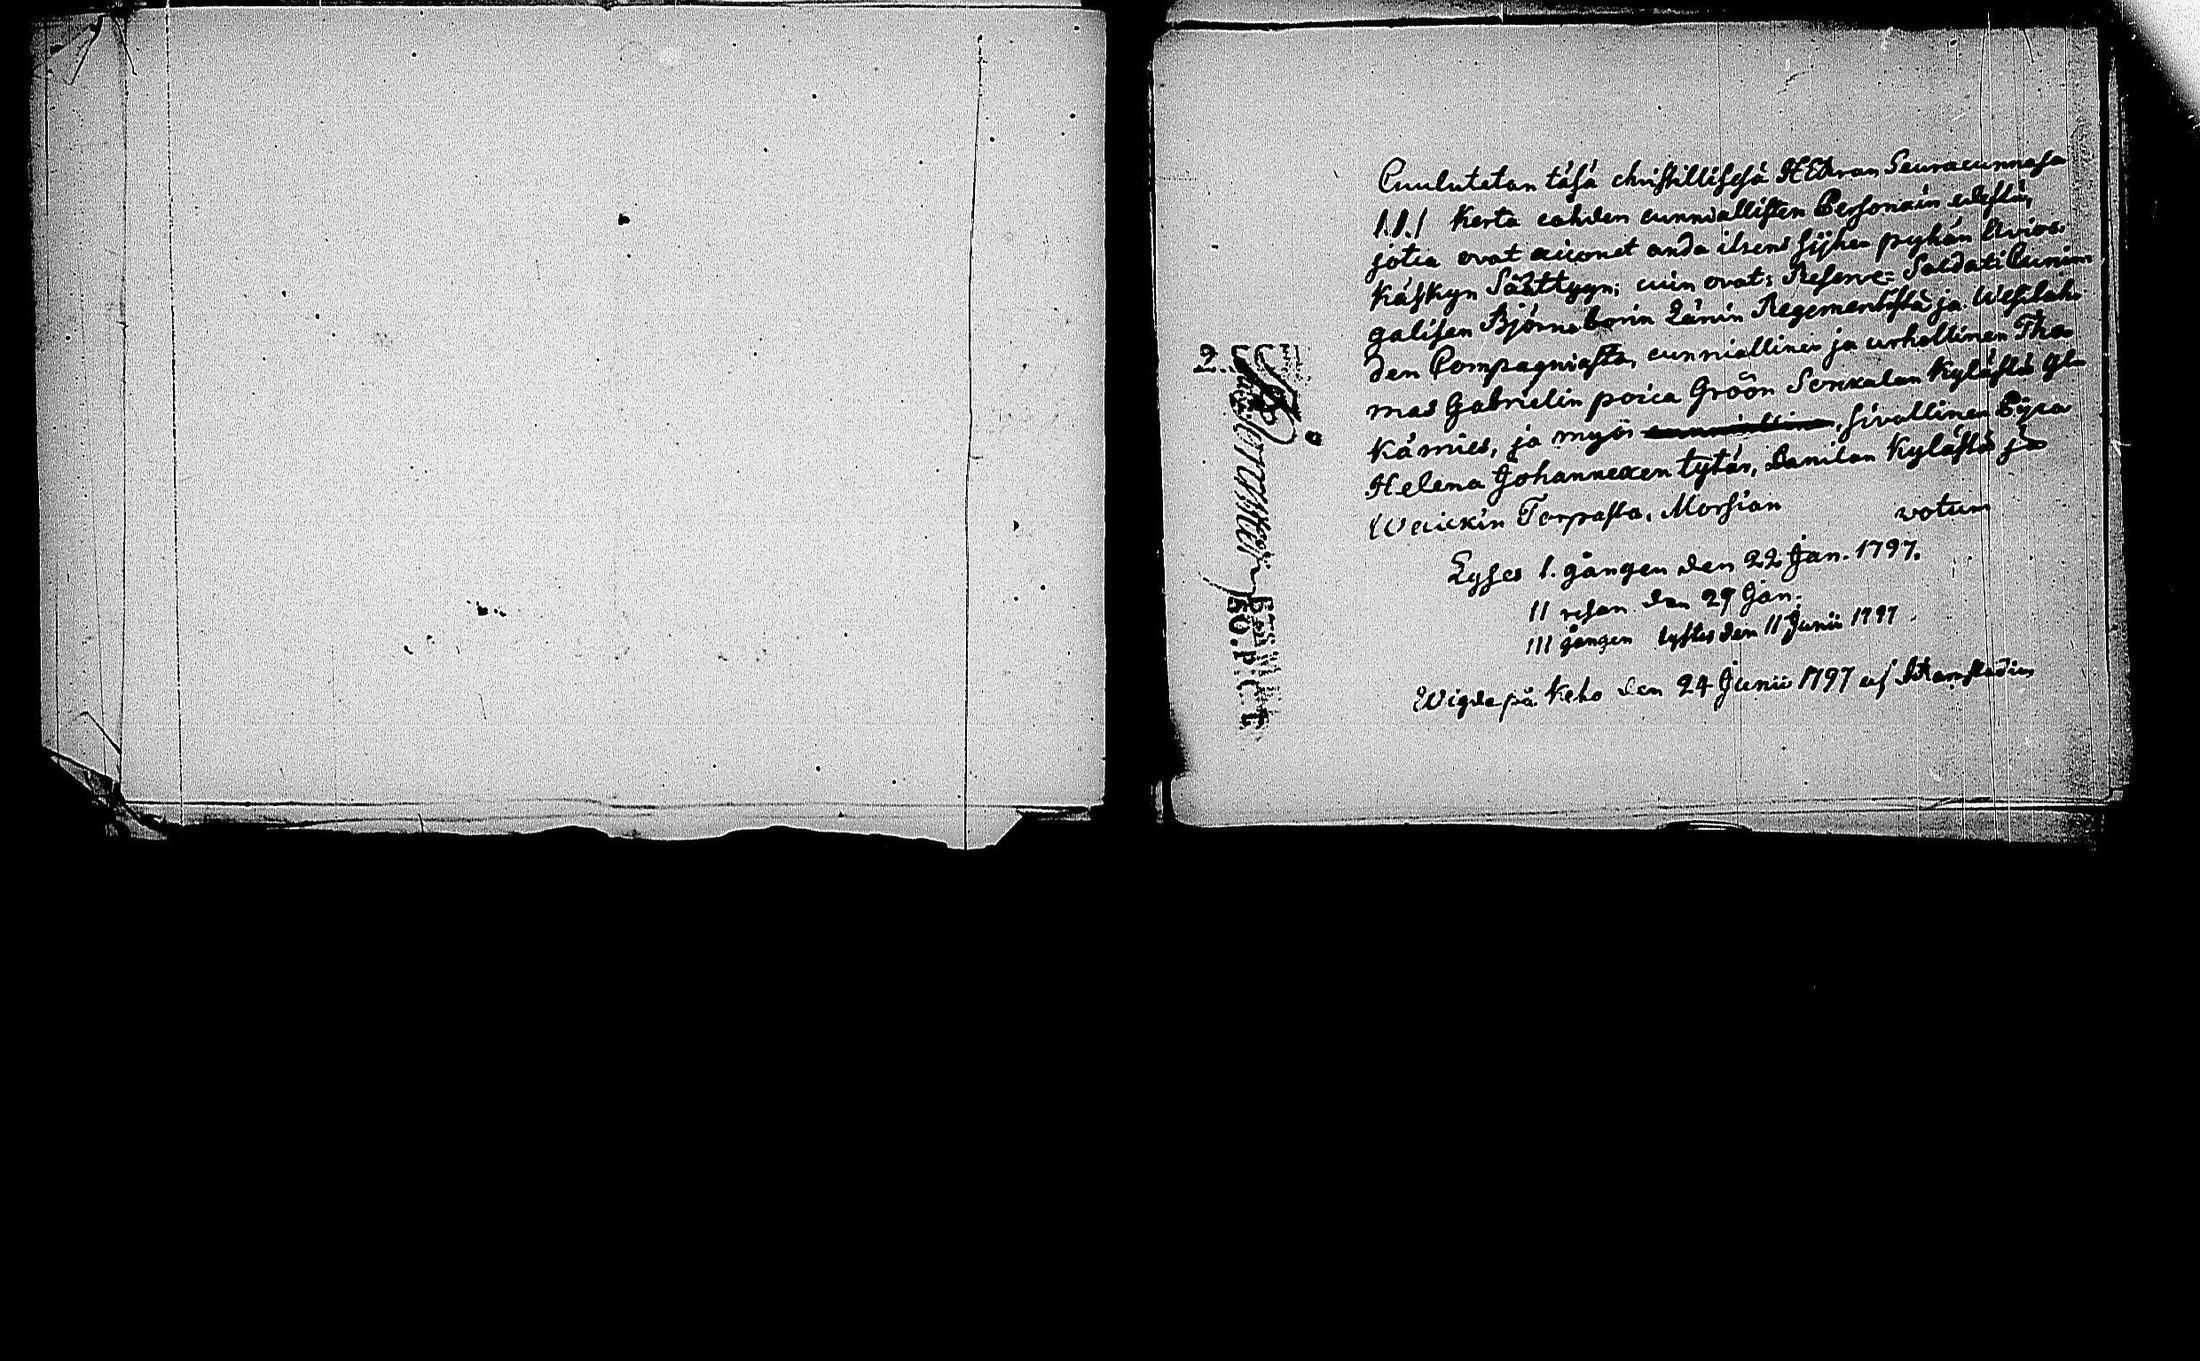 Cuulutetan täsä christillisesä HErran Seuracunnasa
1.1./ Kerta cahden cunniallisten Personain edestä,
jotca ovat aiconet anda itsens sijhen pyhän Avios-
käskyn Säättyyn; cuin ovat: Reserve-Soldati Cunin-
galisen Björneborin Länin Regementistä ja Wesilah-
den Compagniasta, cunniallinen ja urhollinen Tho-
mas Gabrielin poica Gröön Sonkalan Kylästä yl-
kämies, ja myös sivallinen Pijca
Helena Johannexen tytär, Kylästä ja
Torpasta, Morsian votum
Lyses 1. gången den 22 Jan. 1797.
II resan den 29 Jan.
III gången lystes den 11 Junii 1797
Wigde på Keho den 24 Junii 1797 af
2.
50.P.C.L